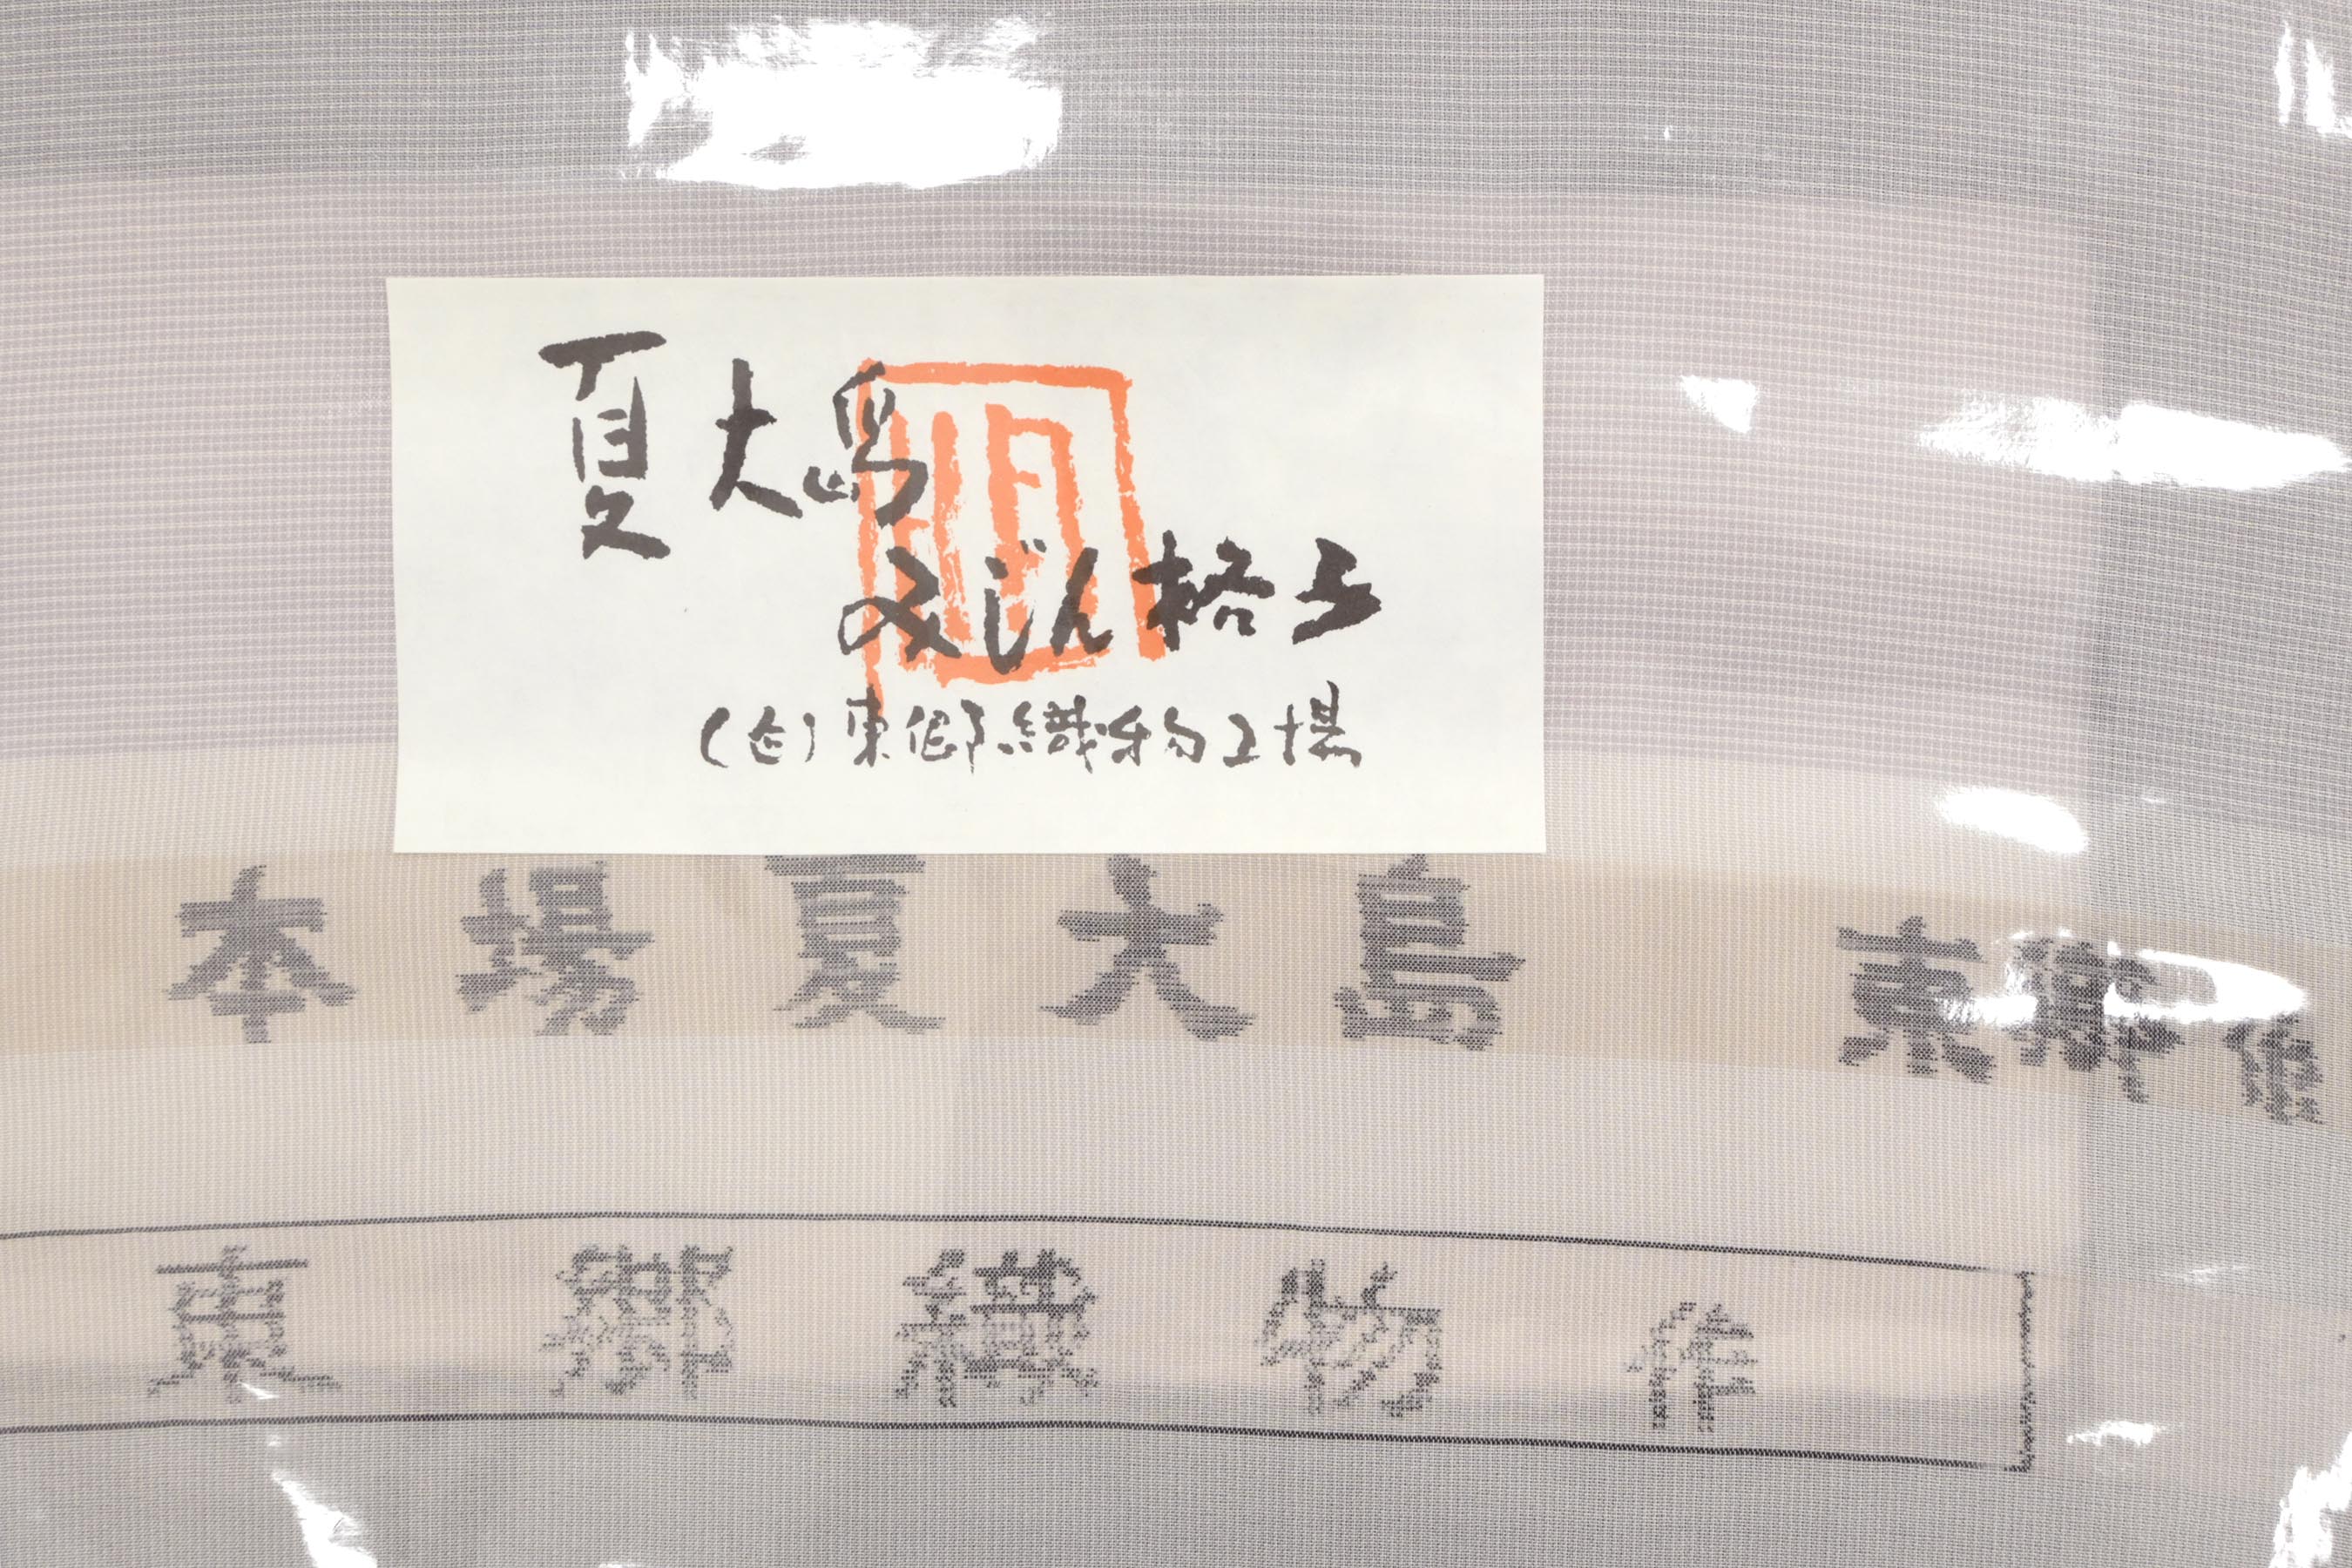 夏大島
みじん格子
(合)東郷織物工場
本場夏大島 東郷織
東郷織物作